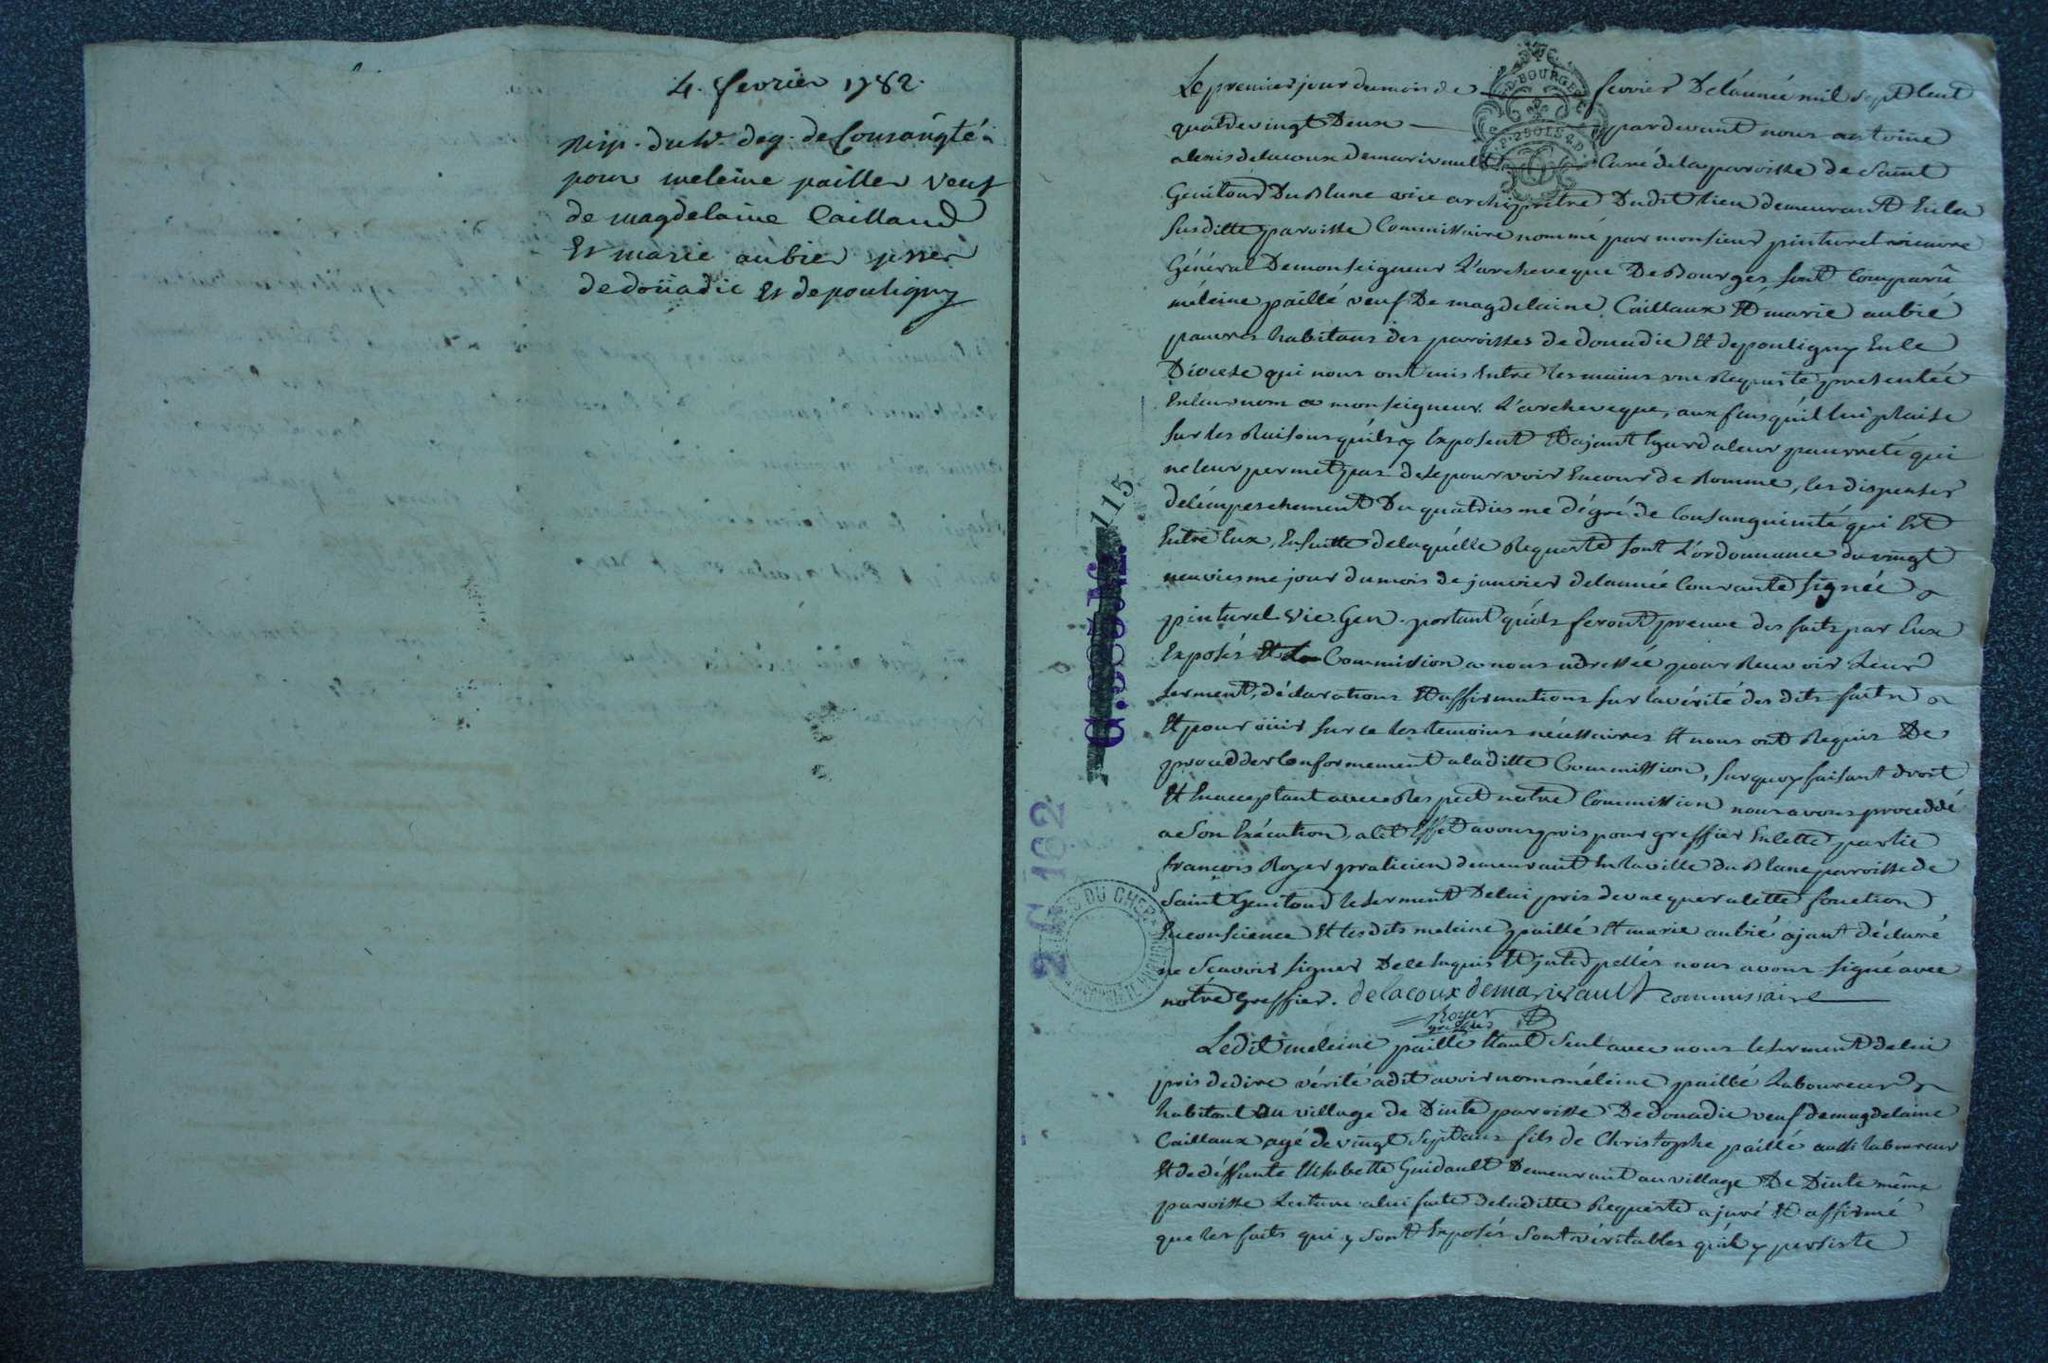 4. fevrier 1782.
Disp. du 4e. deg. de Consangté.
pour meleine pailler veuf
de magdelaine Caillaud
Et marie aubier ptssers
de doüadic Et de pouligny
Le premier jour du mois de fevrier De l'année mil sept Cent
quatre vingt Deux pardevant nous antoine
alexis delacoux demarivault Curé de la paroisse de Saint
Genitour Du Blanc vice archiprêtre Dudit lieu demeurant En la
susditte paroisse Commissaire nommé par monsieur pinturel vicaire
Général De monseigneur L'archeveque De Bourges sont Comparû
méleine paillé veuf De magdelaine Caillaux Et marie aubié
pauvres habitans des paroisses de douadic Et de pouligny En Ce
Diocese qui nous ont mis Entre les mains une Requeste presentée
En leur nom a monseigneur L'archeveque, aux fins qu'il lui plaise
sur les Raisons qu'ils y Exposent Et ajant Egard a leur pauvreté qui
ne leur permet pas de se pourvoir En cour de Romme, les dispenser
de l'empeschement Du quatriesme dégré de Consanguinité qui Est
Entre Eux, En suitte de laquelle Requeste sont L'ordonnance du vingt
neuviesme jour du mois de janvier de l'année Courante signée
pinturel Vic. Gen. portant qu'ils feront preuve des faits par Eux
Exposés Et La Commission a nous adressée pour Recevoir Leur
serment, déclarations Et affirmations sur la vérité des dits faits
Et pour oüir sur ce les temoins nécessaires Et nous ont Requis De
procedder Conformement a laditte Commission, sur quoy faisant droit
Et En acceptant avec Respect notre Commission nous avons proceddé
a son Exécution, a Cet Effet avons pris pour greffier En Cette partie
françois Royer praticien demeurant En la ville du Blanc paroisse de
Saint Genitour le serment De lui pris de vacquer a Cette fonction
En conscience Et les dits meleine paillé Et marie aubié ajant déclaré
ne Scavoir signer De ce Enquis Et jnterpellés nous avons signé avec
notre Greffier. delacoux demarivault commissaire
Royer
greffier
Ledit méleine paillé Etant seul avec nous le serment de lui
pris de dire vérité a dit avoir nom méleine paillé Laboureur
habitant au village de Dinte paroisse De douadic veuf de magdelaine
Caillaux agé de vingt Sept ans fils de Christophe paillé aussi laboureur
Et de déffunte Elisabette Guidault Demeurant au village De Dinte même
paroisse Lecture a lui faite de laditte Requeste a juré Et affirmé
que les faits qui y sont Exposés Sont véritables qu'il y persiste
G. BOURGES
2 SOLS
115
2 G 162
ARCHIVES DU CHER